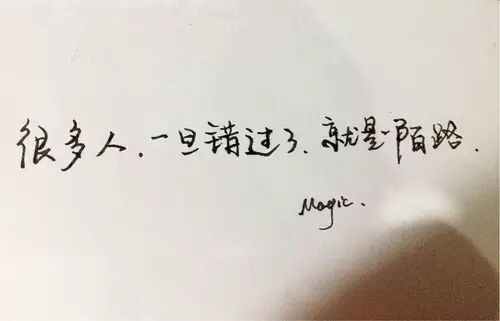 很多人.一旦错过了、就是陌路.
Magic.